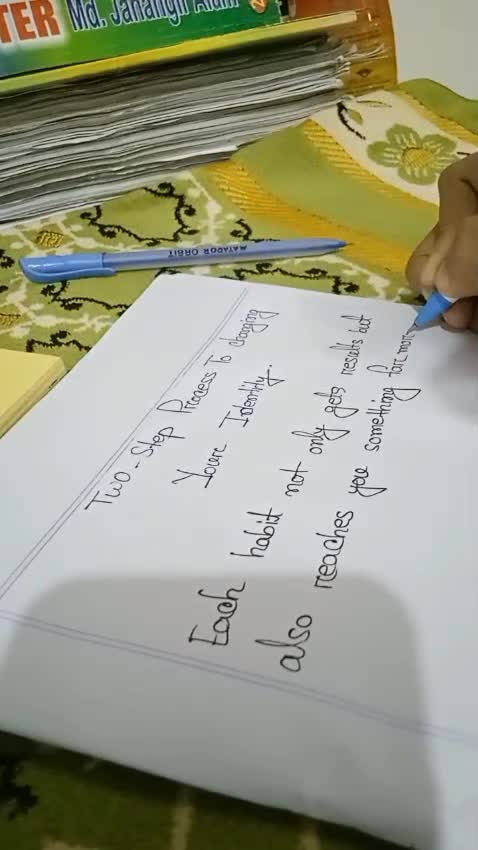 TER Md. Jahangir Alam
MATADOR ORBIT
Two-Step Process To changing
Youre Identity.
Each habit not only gets results but
also reaches you something far mor